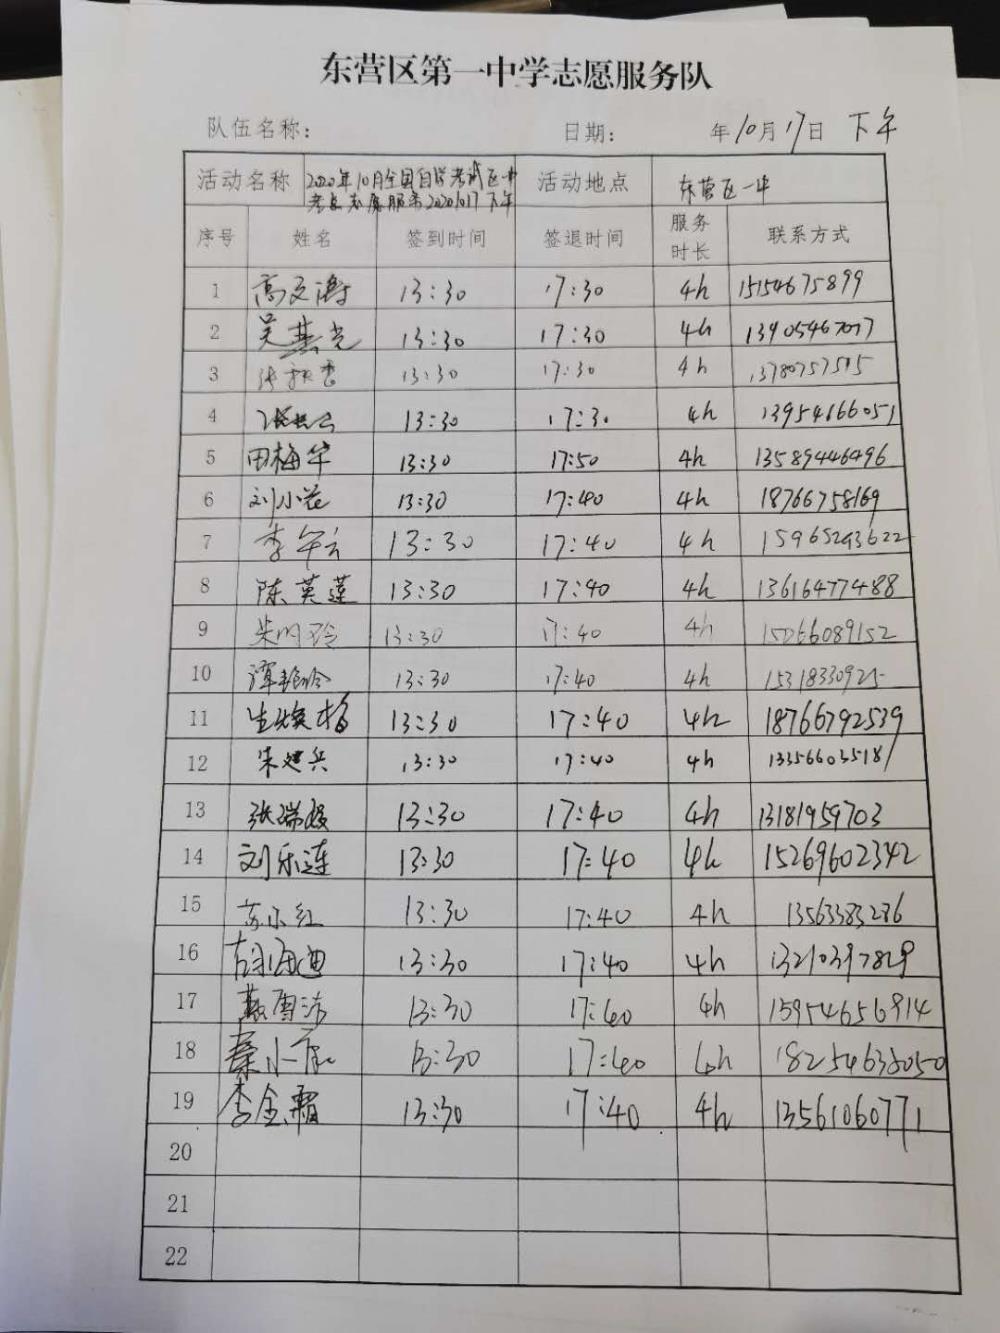 东营区第一中学志愿服务队
队伍名称： 日期： 年10月17日 下午
活动名称 2020年10月全国自学考试区一中 活动地点 东营区一中
考点志愿服务20201017下午
序号 姓名 签到时间 签退时间 服务时长 联系方式
1 高文涛 13:30 17:30 4h 15154675899
2 吴燕光 13:30 17:30 4h 13905467077
3 张秋香 13:30 17:30 4h 13780757515
4 13:30 17:30 4h 13954666051
5 田梅华 13:30 17:50 4h 13589446496
6 刘小花 13:30 17:40 4h 18766758169
7 李午云 13:30 17:40 4h 15965293622
8 陈英莲 13:30 17:40 4h 13616477488
9 朱明玲 13:30 17:40 4h 15266089152
10 谭艳玲 13:30 17:40 4h 15318330925
11 生焕梅 13:30 17:40 4h 18766792539
12 朱建兵 13:30 17:40 4h 13356603518
13 张瑞娥 13:30 17:40 4h 13181959703
14 刘乐莲 13:30 17:40 4h 15269602342
15 苏小红 13:30 17:40 4h 13563383286
16 胡海迪 13:30 17:40 4h 13210397829
17 13:30 17:40 4h 15954656914
18 秦小 13:30 17:40 4h 18254635050
19 李金霜 13:30 17:40 4h 13561060771
20
21
22